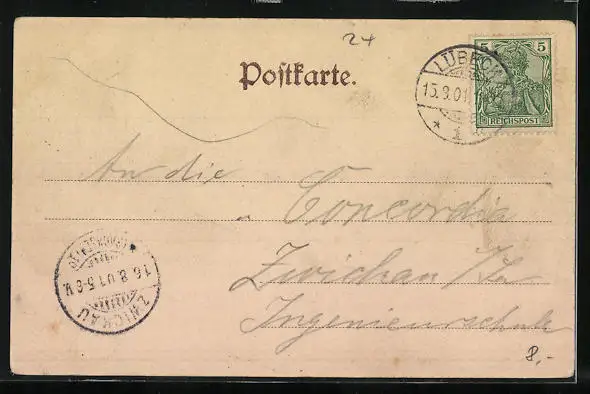 24
Postkarte.
5 5
REICHSPOST
LÜBECK
15.8.01.
* 1
An die
Concordia
Zwickau i/Sa
Ingenieurschule
16.8.01.5-6V.
ZWICKAU
8,-